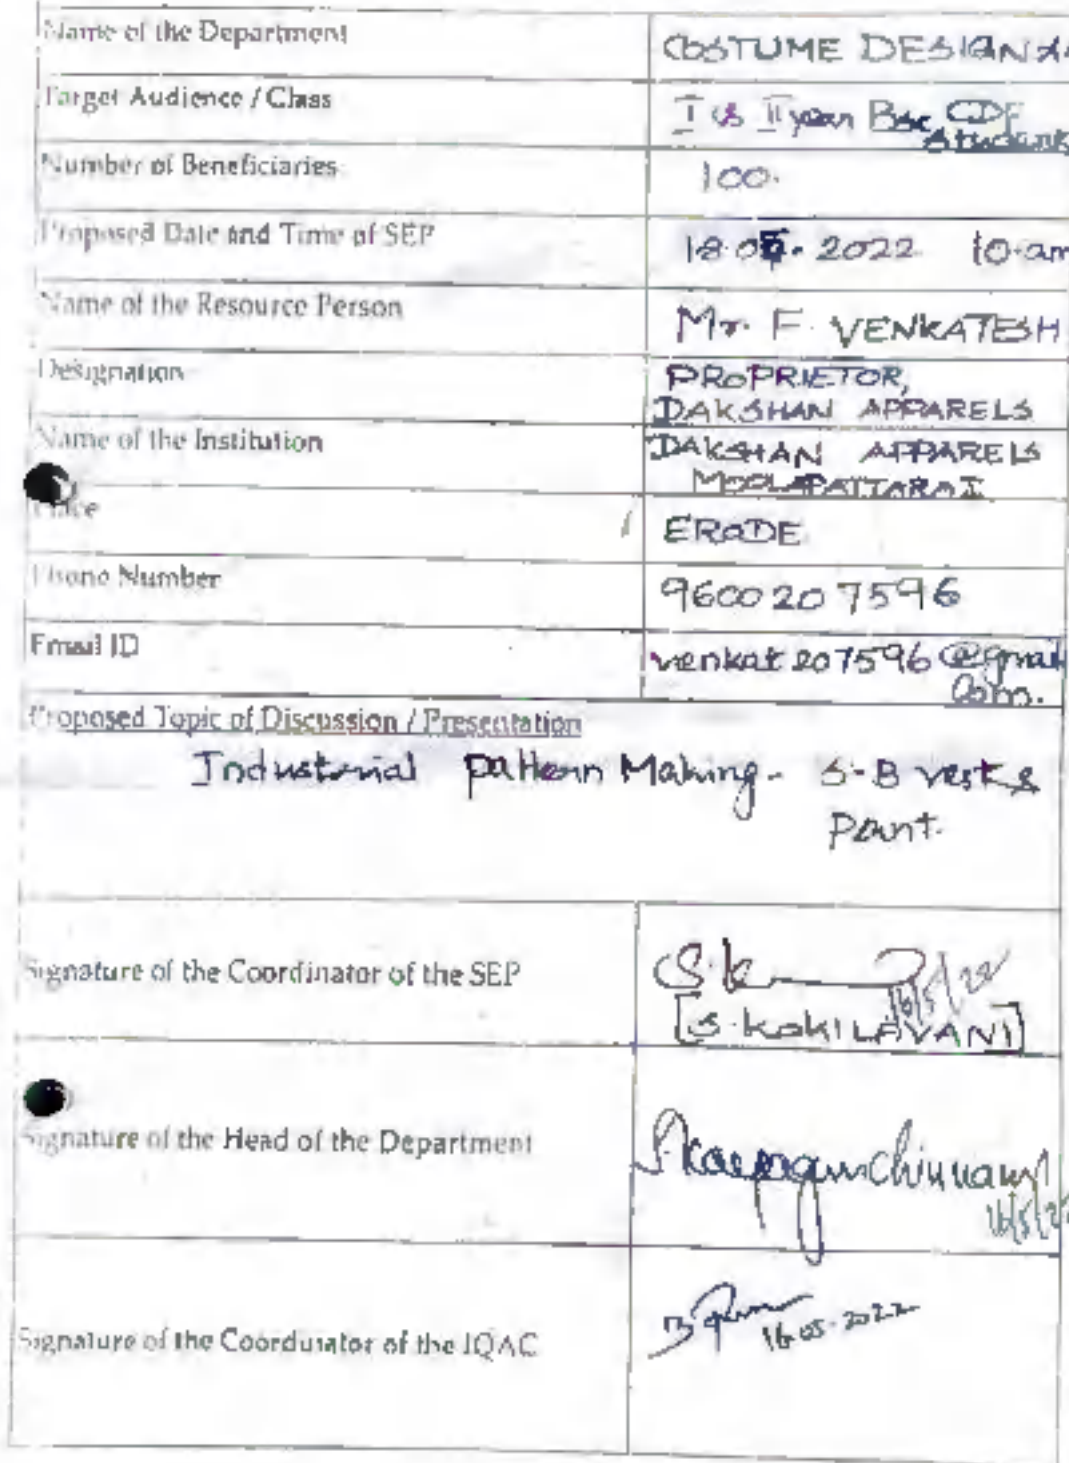 Name of the Department
COSTUME DESIGN
Target Audience / Class
I & II year Bsc CDF
Students
Number of Beneficiaries
100.
Proposed Date and Time of SEP
18.05.2022 10-am
Name of the Resource Person
Mr. F. VENKATESH
Designation
PROPRIETOR,
DAKSHAN APPARELS
Name of the Institution
DAKSHAN APPARELS
MOOLAPATTARAI
Place
ERODE
Phone Number
9600207596
Email ID
venkat207596@gmail
Com.
Proposed Topic of Discussion / Presentation
Industrial pattern Making - S-B vest &
pant.
Signature of the Coordinator of the SEP
16/5/22
[S. KOKILAVANI]
Signature of the Head of the Department
16/5/22
Signature of the Coordinator of the IQAC
16.05.2022